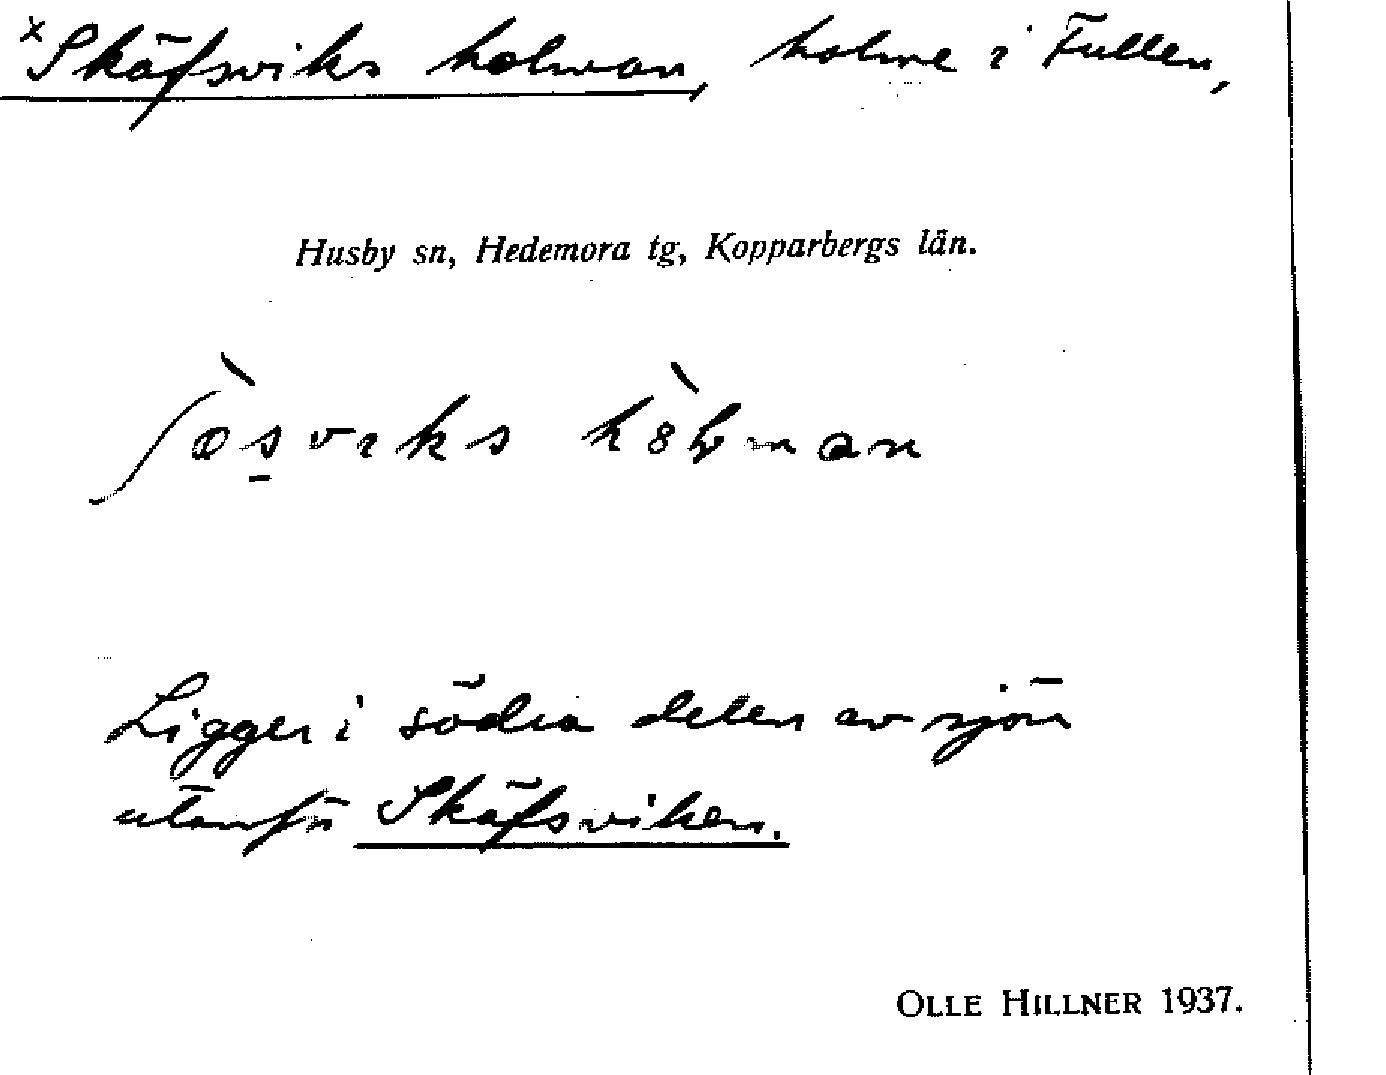 x Skäfsviks holman, holme i Fullen,
Husby sn, Hedemora tg, Kopparbergs län.
Ligger i södra delen av sjön
utanför Skäfsviken.
OLLE HILLNER 1937.